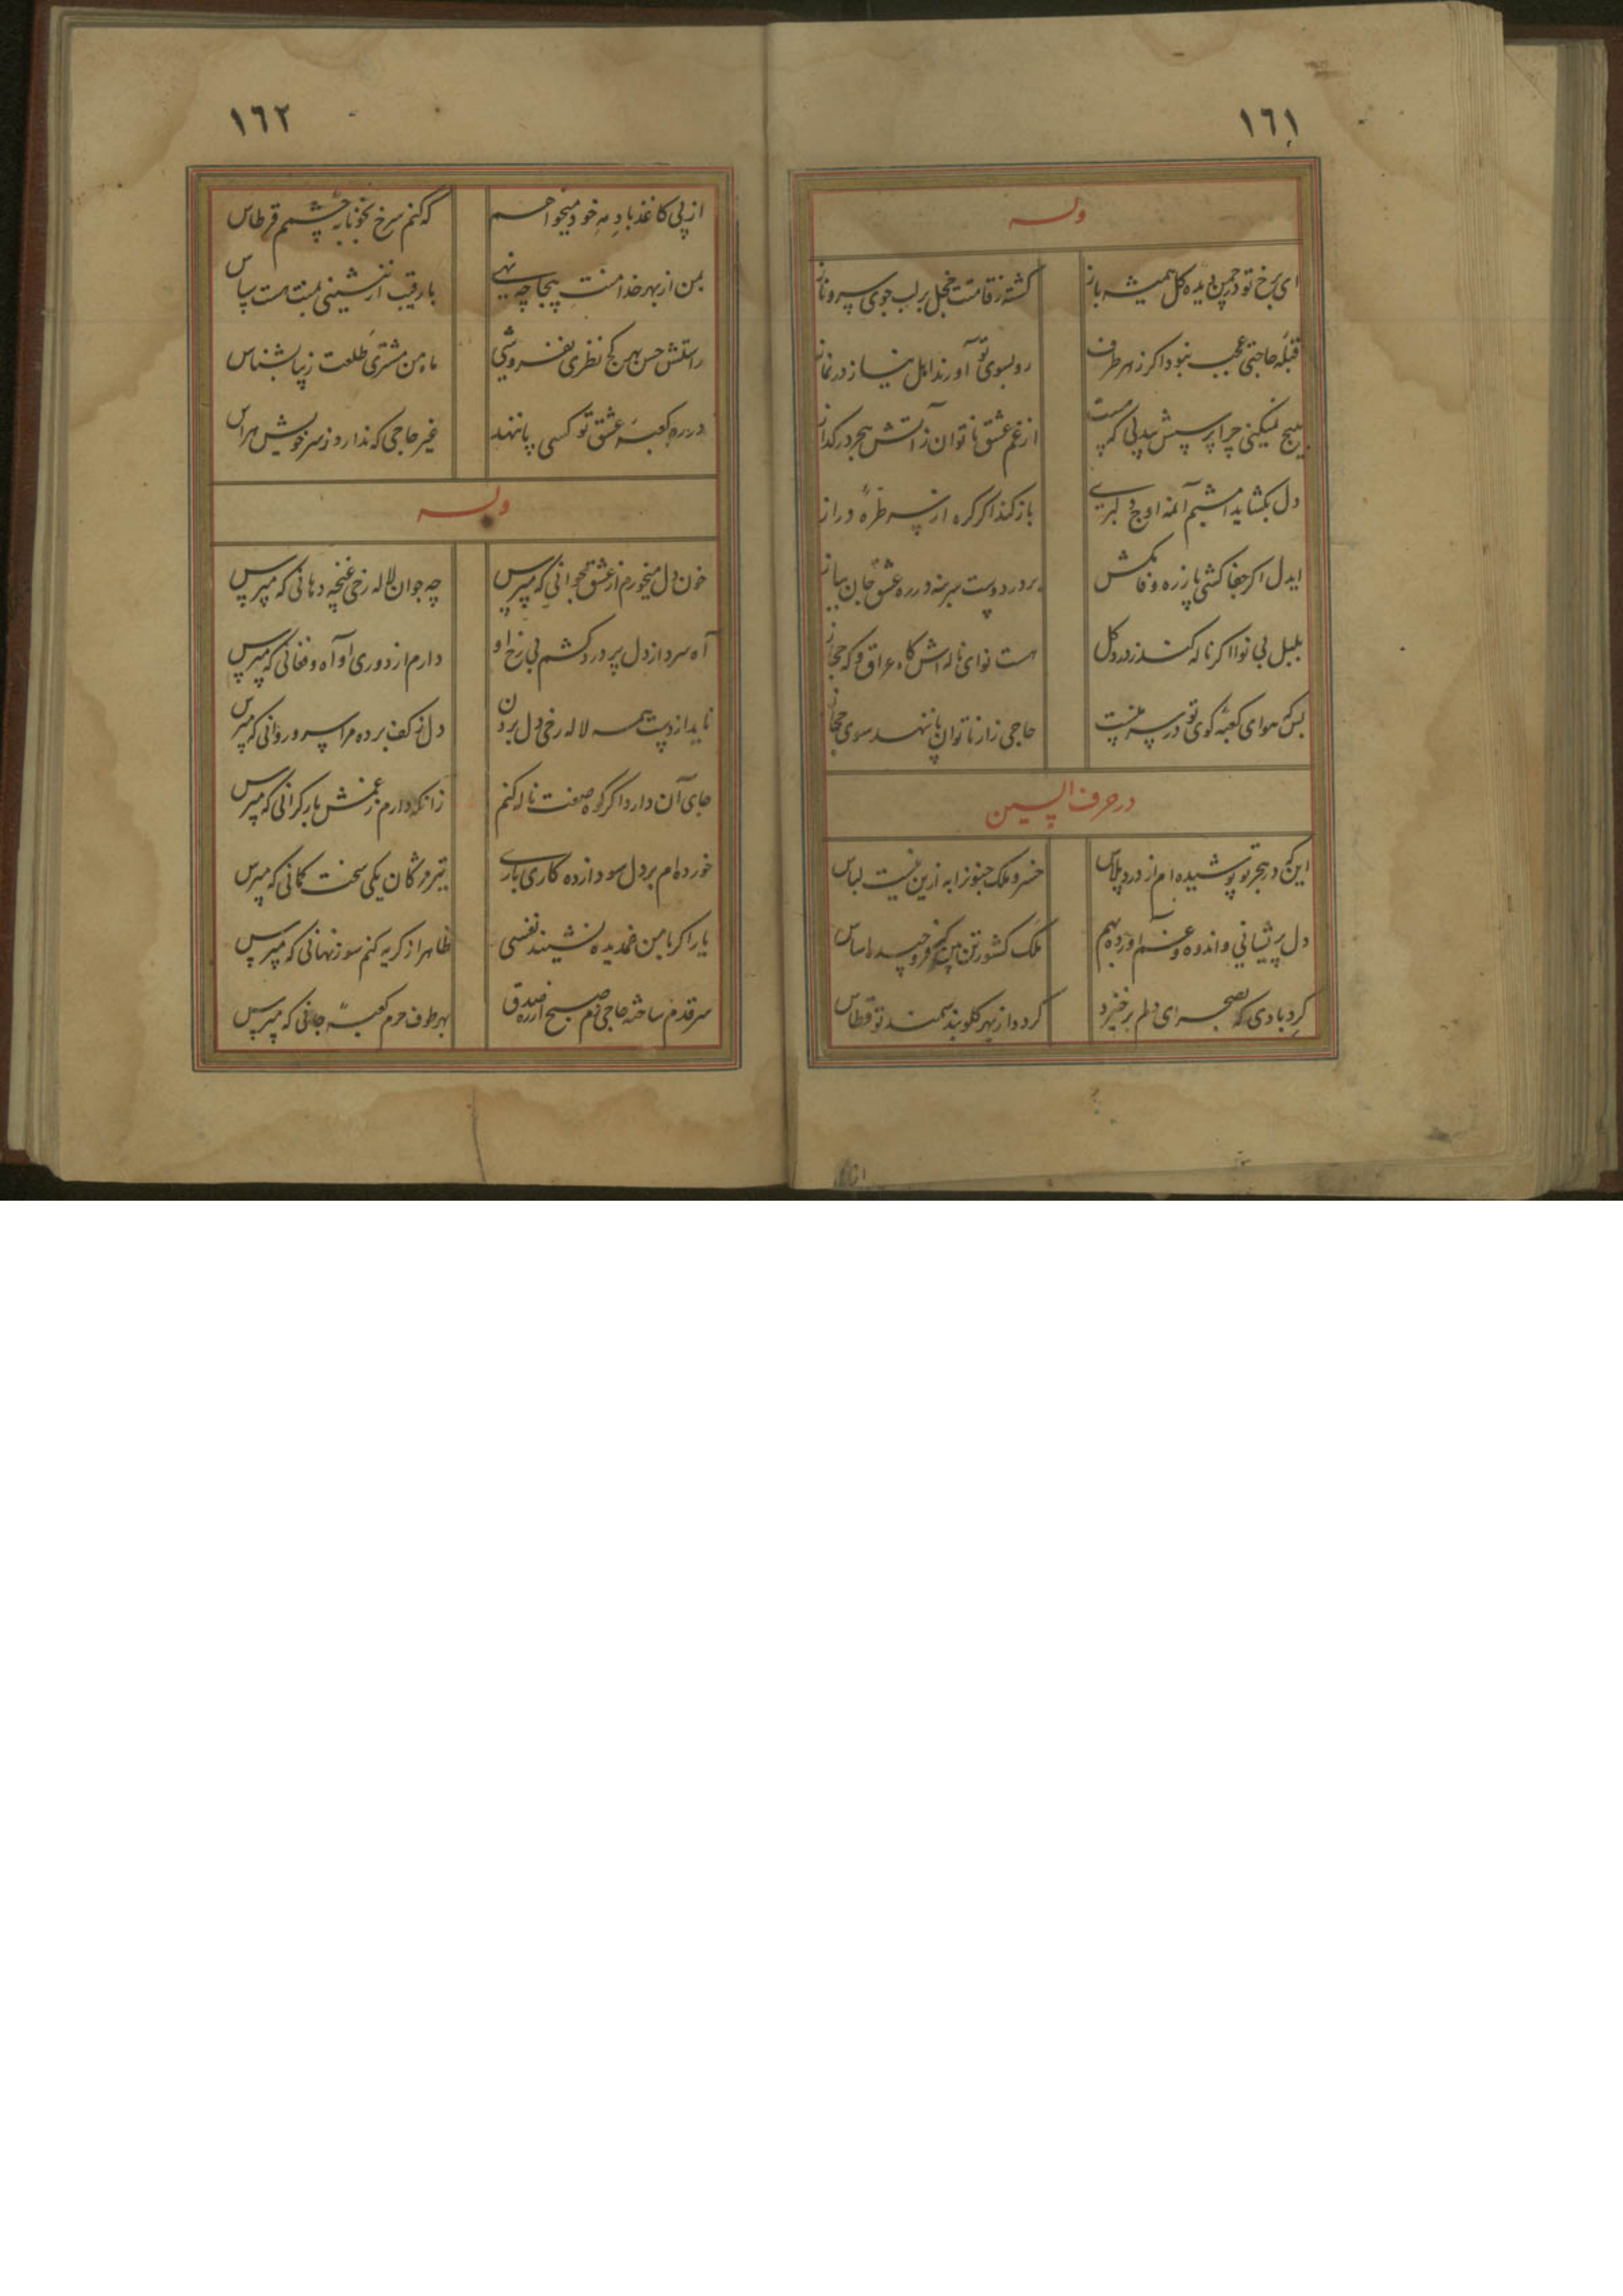 ١٦١
وله
ای برخ تو در چمن دیده کل همیشه باز
کشته ز قامتت خجل بر لب جوی سرو ناز
قبله حاجتی عجب نبود اکر ز هر طرف
رو بسوی تو آورند اهل نیاز در نماز
هیچ نمیکنی چرا پرسش بیدلی که هست
از غم عشق ناتوان ز آتش هجر در کداز
دل بکشاید
باز کند اکر کره از سر طره دراز
ایدل اکر جفا کشی پا ز ره وفا مکش
بر در دوست سر بنه در ره عشق جان بباز
بلبل بی نوا اکر ناله کند ز درد کل
هست نوای ناله اش کاه عراق و که حجاز
بسکه هوای کعبه کوی تو در سر منست
حاجی زار ناتوان پا ننهد سوی حجاز
در حرف السین
این که در هجر تو پوشیده ام از درد پلاس
خسرو ملک جنونرا به ازین نیست لباس
دل پریشانی و اندوه و غم آورده بهم
ملک کشور تن بین
کردبادی که بصحرای دلم برخیزد
کردد از بهر کلوبند سمند تو قطاس
١٦٢
از پی کاغذ باد مه خود میخواهم
که کنم سرخ بخونابه چشمم قرطاس
بمن از بهر خدا منت بیجا چه نهی
با رقیب ار ننشینی بمنت هست سپاس
راستش حسن بهر کج نظری نفروشی
ماه من مشتری طلعت زیبا بشناس
در ره کعبه عشق تو کسی پا ننهد
غیر حاجی که ندارد ز سر خویش هراس
وله
خون دل میخورم از عشق جوانی که مپرس
چه جوان لاله رخی غنچه دهانی که مپرس
آه سرد از دل پر درد کشم بی رخ او
دارم از دوری او آه و فغانی که مپرس
ناید از دست همه لاله رخی دل بردن
دل ز کف برده مرا سرو روانی که مپرس
جای آن دارد اکر کوه صفت ناله کنم
زانکه دارم ز غمش بار کرانی که مپرس
خورده ام بر دل سودازده کاری باری
تیر مژکان یکی سخت کمانی که مپرس
یار اکر با من غمدیده نشیند نفسی
ظاهر از کریه کنم سوز نهانی که مپرس
سر قدم ساخته حاجی دم صبح از ره صدق
بهر طوف حرم کعبه جانی که مپرس